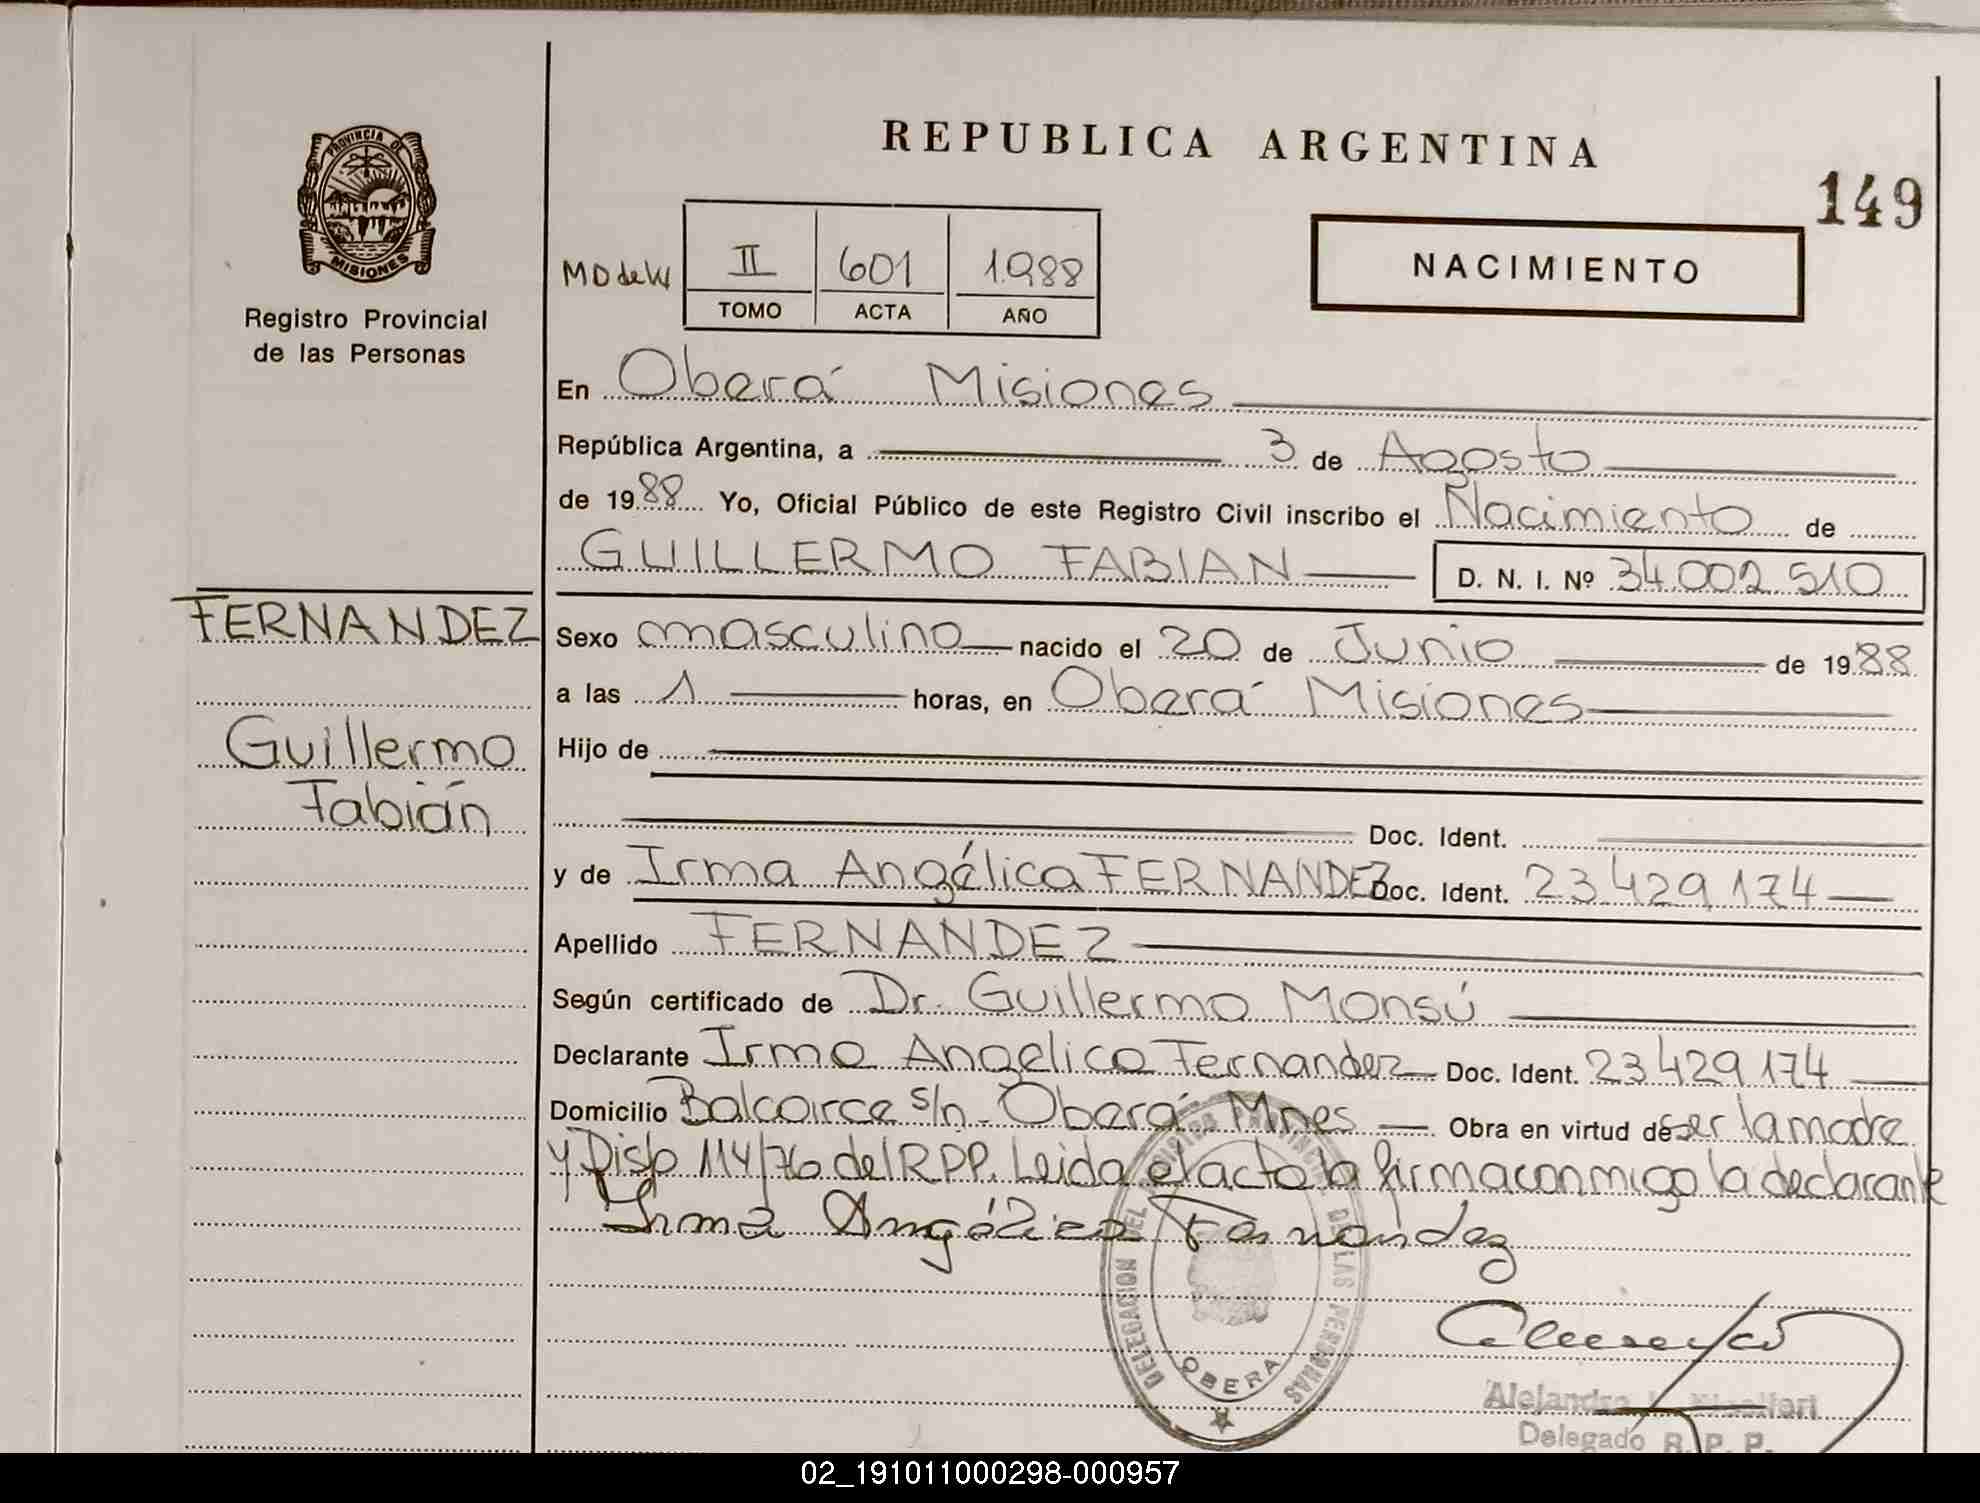 REPUBLICA ARGENTINA
149
PROVINCIA DE
MISIONES
Registro Provincial
de las Personas
II 601 1.988
TOMO ACTA AÑO
NACIMIENTO
En Oberá Misiones
República Argentina, a 3 de Agosto
de 1988 Yo, Oficial Público de este Registro Civil inscribo el Nacimiento de
GUILLERMO FABIAN D. N. I. Nº 34.002.510
FERNANDEZ
Guillermo
Fabián
Sexo masculino nacido el 20 de Junio de 1988
a las 1 horas, en Oberá Misiones
Hijo de
Doc. Ident.
y de Irma Angélica FERNANDEZ Doc. Ident. 23.429.174
Apellido FERNANDEZ
Según certificado de Dr. Guillermo Monsú
Declarante Irma Angelica Fernandez Doc. Ident. 23.429.174
Domicilio Balcarce s/n. Oberá Mnes Obra en virtud de ser la madre
y Disp 114/76 del R.P.P. Leida el acta la firma conmigo la declarante
Irma Angélica Fernández
DELEGACION DEL REGISTRO PROVINCIAL DE LAS PERSONAS
OBERA
Delegado R. P. P.
02_191011000298-000957